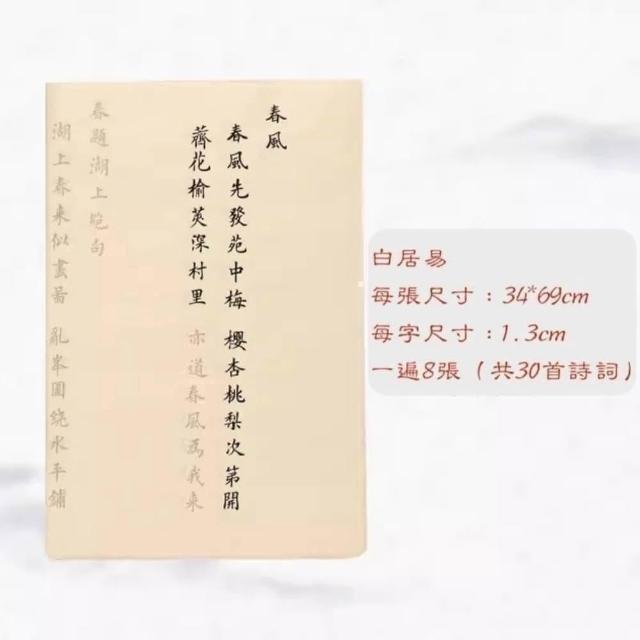 春風
春風先發苑中梅 櫻杏桃梨次第開
薺花榆莢深村里 亦道春風為我来
春題湖上绝句
湖上春来似畫畕 亂峯圍绕水平鋪
白居易
每張尺寸：34*69cm
每字尺寸：1.3cm
一遍8張（共30首詩詞）